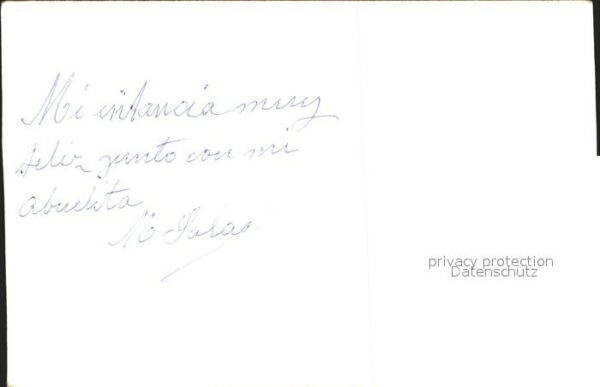 Mi infancia muy
feliz junto con mi
abuelita
M Salas
privacy protection
Datenschutz